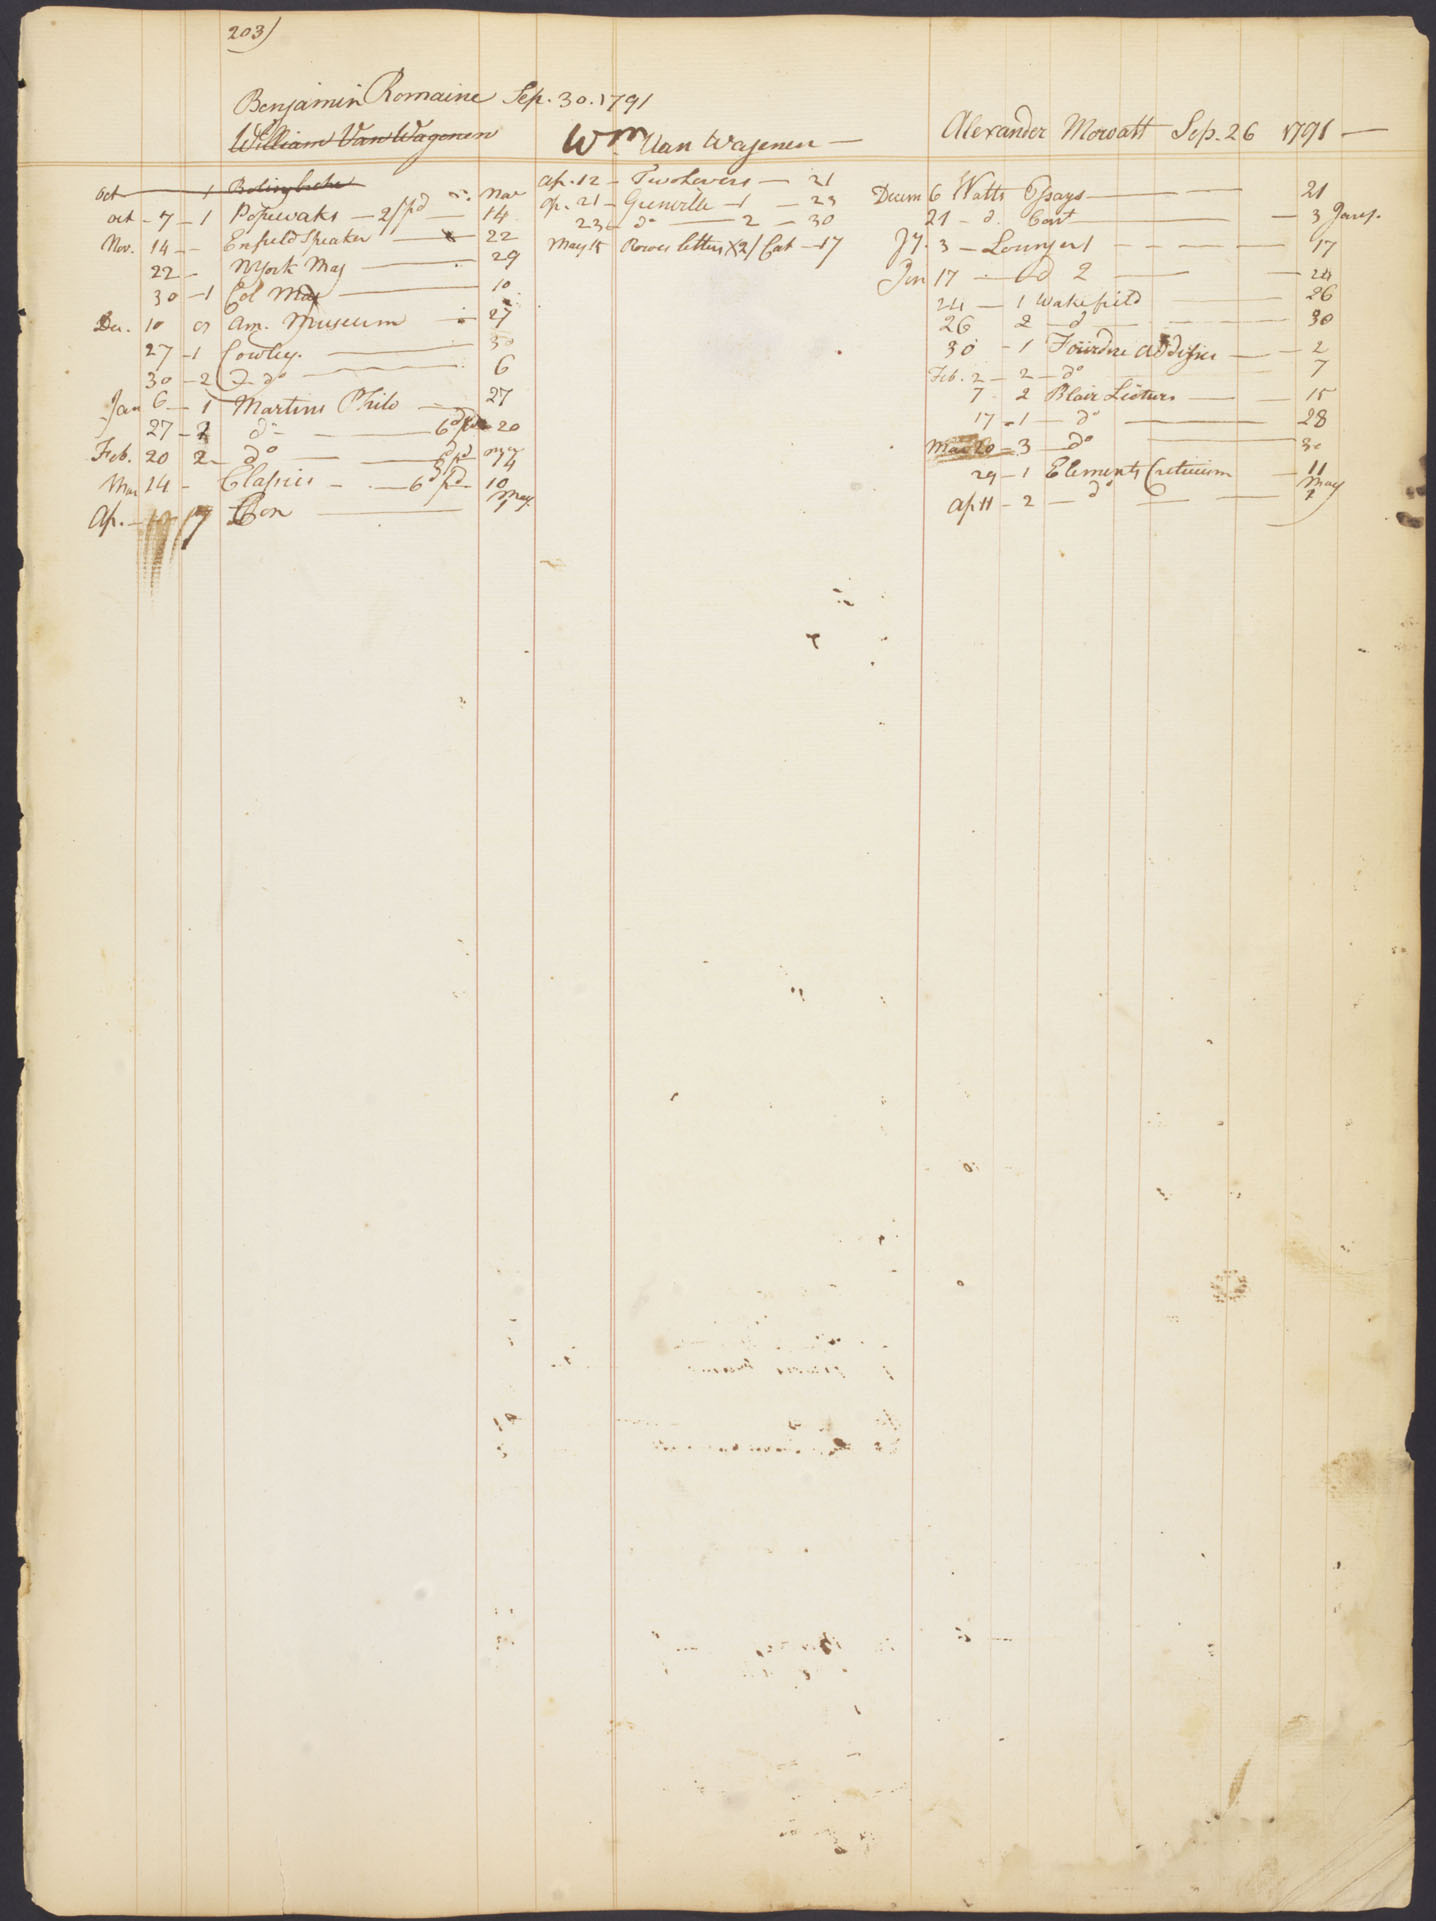 203)
Benjamin Romaine Sep. 30. 1791
William Van Wagenen
Oct 1 Bolingbroke
Oct - 7 - 1 Popewaks - 2/ pd - Nov 14
Nov. 14 - Enfield Speaker - 22
22 - NYork Mag - 29
30 - 1 Col Mag - 10
Dec. 10 or Am. Museum - 27
27 - 1 Cowley. - 30
30 - 2 Do - 6
Jan 6 - 1 Martins Philo - 27
27 - 2 do - 20
Feb. 20 2 - do
Mar 14 - Classics - 6d pd - 10
Ap. - May
Wm Van Wagenen -
Ap. 12 - Two Lovers - 21
Ap. 21 - Grenville - 1 - 23
23 - do - 2 - 30
May 15 Rowes letters x 2/ Cat - 17
Alexander Mowatt Sep. 26 1791 -
Decem 6 Watts Essays - 21
21 - d. - 3 Jany.
Jy. 3 - Lounger 1 - 17
Jan 17 - Od 2 - 24
24 - 1 Wakefield - 26
26 2 - do - 30
30 - 1 - 2
Feb. 2 - 2 - do - 7
7 - 2 Blair Lecturs - 15
17 - 1 - do - 28
Mar 20 - 3 - do - 30
29 - 1 Elements Criticism - 11
Ap 11 - 2 - do - May